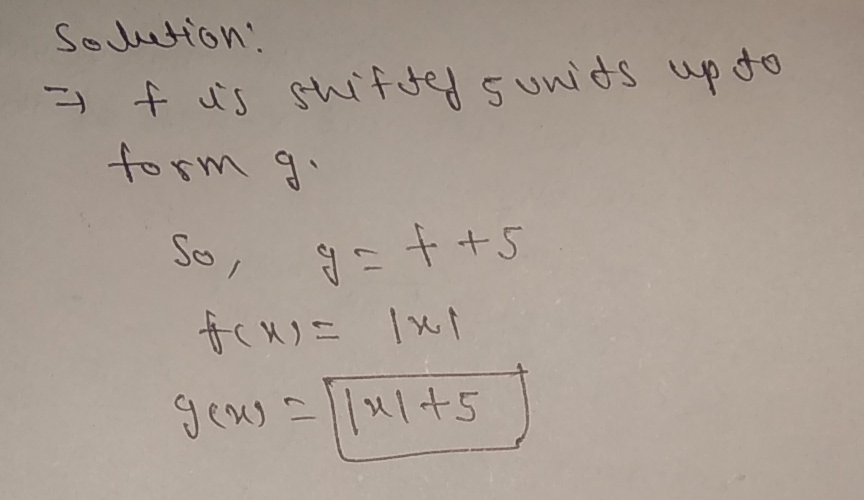 Solution:
⇒ f is shifted 5 units up to
form g.
So, g = f + 5
f(x) = |x|
g(x) = |x| + 5